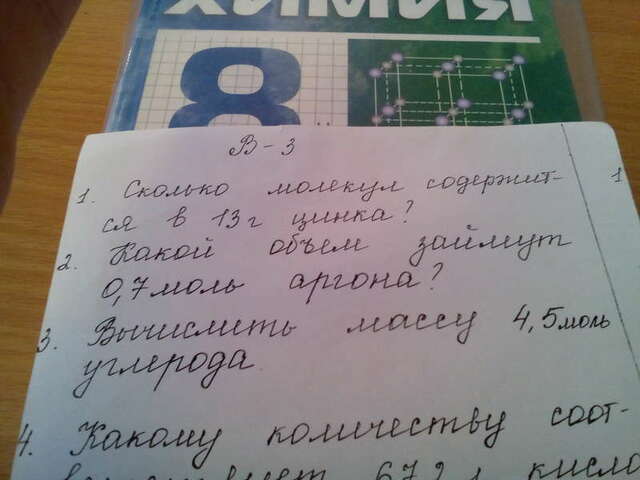 ХИМИЯ
8
В-3
1. Сколько молекул содержит-
ся в 13 г цинка?
2. Какой объем займут
0,7 моль аргона?
3. Вычислить массу 4,5 моль
углерода.
4. Какому количеству соот-
672 л кисло
1